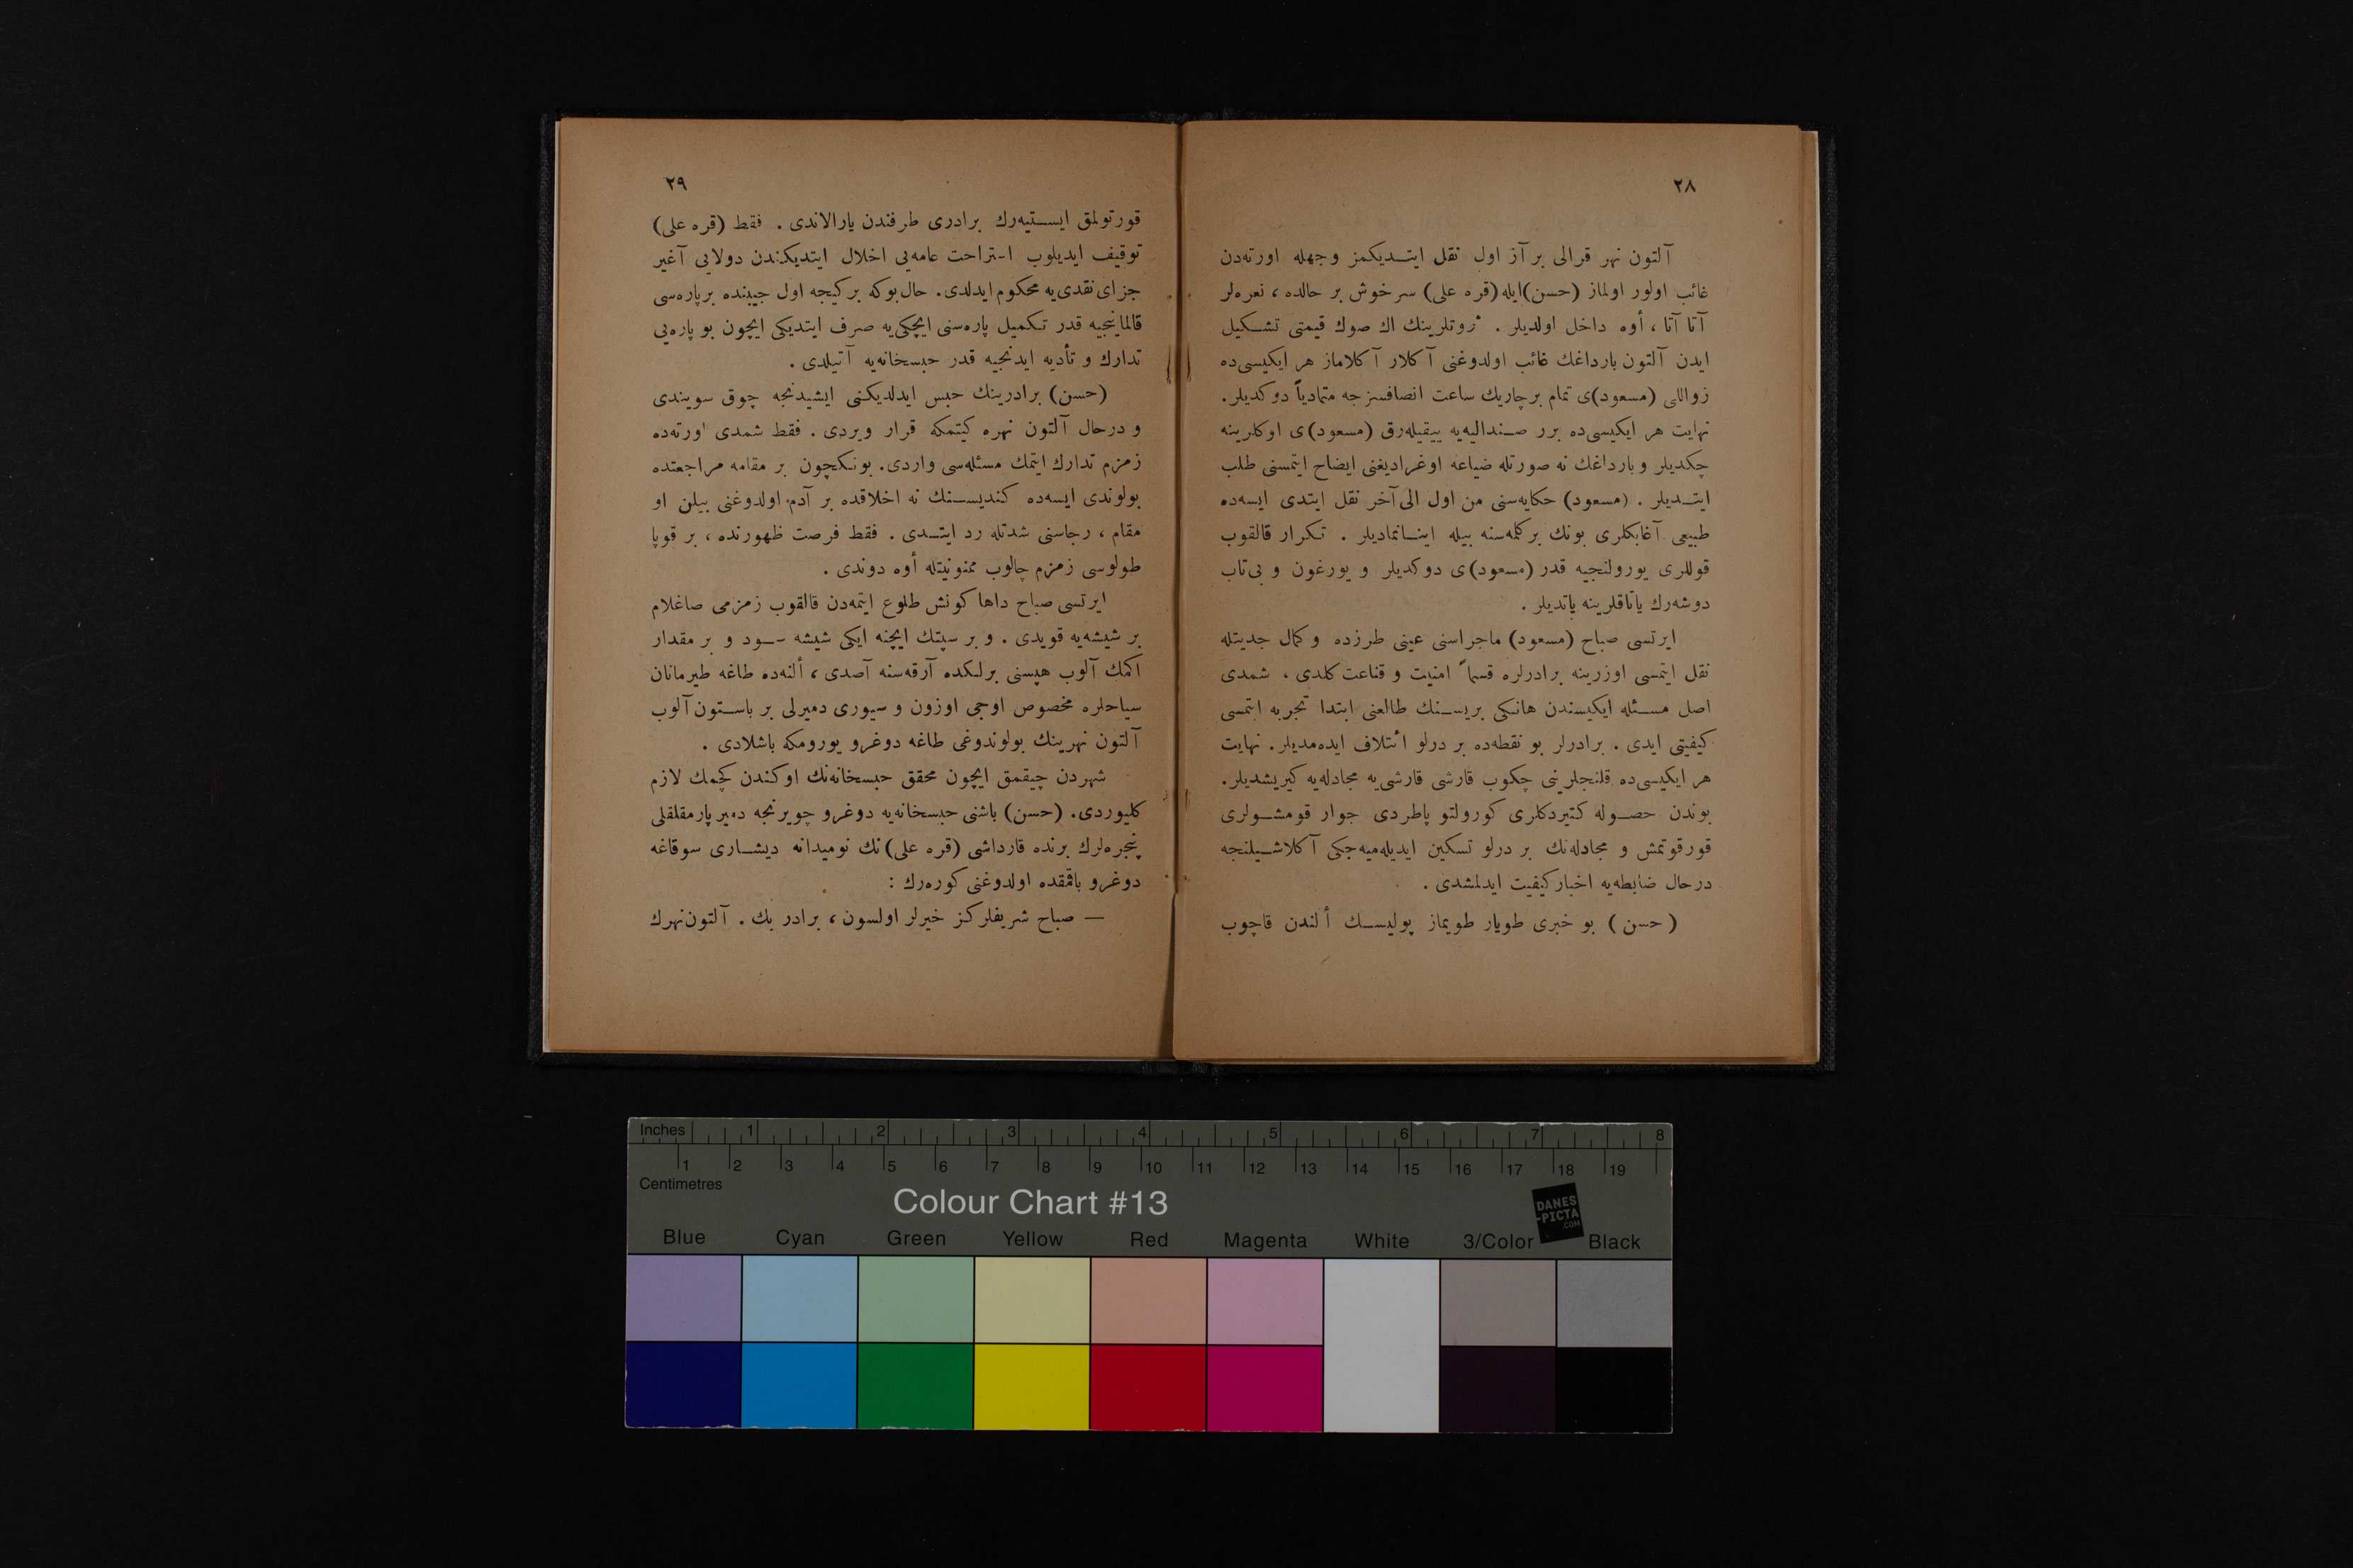 ٢٨
آلتون نهر قرالی بر آز اول نقل ایتدیکمز وجهله اورته‌دن
غائب اولور اولماز (حسن) ایله (قره علی) سرخوش بر حالده ، نعره‌لر
آتا آتا ، أوه داخل اولدیلر . ثروتلرینك اك صوك قیمتی تشکیل
ایدن آلتون بارداغك غائب اولدوغنی آکلار آکلاماز هر ایکیسی‌ده
زواللی (مسعود)ی تمام بر چاریك ساعت انصافسزجه متمادیاً دوکدیلر .
نهایت هر ایکیسی‌ده برر صندالیه‌یه ییقیله‌رق (مسعود)ی اوکلرینه
چکدیلر و بارداغك نه صورتله ضیاعه اوغرادیغنی ایضاح ایتمسنی طلب
ایتدیلر . (مسعود) حکایه‌سنی من اول الی آخر نقل ایتدی ایسه‌ده
طبیعی آغابکلری بونك بر کلمه‌سنه بیله اینانمادیلر . تکرار قالقوب
قوللری یورولنجیه قدر (مسعود)ی دوکدیلر و یورغون و بی‌تاب
دوشه‌رك یاتاقلرینه یاتدیلر .
ایرتسی صباح (مسعود) ماجراسنی عینی طرزده و کمال جدیتله
نقل ایتمسی اوزرینه برادرلره قسماً امنیت و قناعت کلدی ، شمدی
اصل مسئله ایکیسندن هانکی بریسنك طالعنی ابتدا تجربه ایتمسی
کیفیتی ایدی . برادرلر بو نقطه‌ده بر درلو ائتلاف ایده‌مدیلر . نهایت
هر ایکیسی‌ده قلنجلرینی چکوب قارشی قارشی‌یه مجادله‌یه کیریشدیلر .
بوندن حصوله کتیردکلری کورولتو پاطردی جوار قومشولری
قورقوتمش و مجادله‌نك بر درلو تسکین ایدیله‌میه‌جکی آکلاشیلنجه
درحال ضابطه‌یه اخبار کیفیت ایدلمشدی .
(حسن) بو خبری طویار طویماز پولیسك ألندن قاچوب
٢٩
قورتولمق ایستیه‌رك برادری طرفندن یارالاندی . فقط (قره علی)
توقیف ایدیلوب استراحت عامه‌یی اخلال ایتدیکندن دولایی آغیر
جزای نقدی‌یه محکوم ایدلدی . حال بوکه بر کیجه اول جیبنده بر پاره‌سی
قالماینجیه قدر تکمیل پاره‌سنی ایچکی‌یه صرف ایتدیکی ایچون بو پاره‌یی
تدارك و تأدیه ایدنجیه قدر حبسخانه‌یه آتیلدی .
(حسن) برادرینك حبس ایدلدیکنی ایشیدنجه چوق سویندی
و درحال آلتون نهره کیتمکه قرار ویردی . فقط شمدی اورته‌ده
زمزم تدارك ایتمك مسئله‌سی واردی . بونکچون بر مقامه مراجعتده
بولوندی ایسه‌ده کندیسنك نه اخلاقده بر آدم اولدوغنی بیلن او
مقام ، رجاسنی شدتله رد ایتدی . فقط فرصت ظهورنده ، بر قوپا
طولوسی زمزم چالوب ممنونیتله أوه دوندی .
ایرتسی صباح داها کونش طلوع ایتمه‌دن قالقوب زمزمی صاغلام
بر شیشه‌یه قویدی . و بر سپتك ایچنه ایکی شیشه سود و بر مقدار
اکمك آلوب هپسنی برلکده آرقه‌سنه آصدی ، ألنه‌ده طاغه طیرمانان
سیاحلره مخصوص اوجی اوزون و سیوری دمیرلی بر باستون آلوب
آلتون نهرینك بولوندوغی طاغه دوغرو یورومکه باشلادی .
شهردن چیقمق ایچون محقق حبسخانه‌نك اوکندن کچمك لازم
کلیوردی . (حسن) باشنی حبسخانه‌یه دوغرو چویرنجه دمیر پارمقلقلی
پنجره‌لرك برنده قارداشی (قره علی) نك نومیدانه دیشاری سوقاغه
دوغرو باقمقده اولدوغنی کوره‌رك :
— صباح شریفلرکز خیرلر اولسون ، برادر بك . آلتون نهرك
Inches 1 2 3 4 5 6 7 8
1 2 3 4 5 6 7 8 9 10 11 12 13 14 15 16 17 18 19
Centimetres
Colour Chart #13
DANES
-PICTA
.COM
Blue Cyan Green Yellow Red Magenta White 3/Color Black